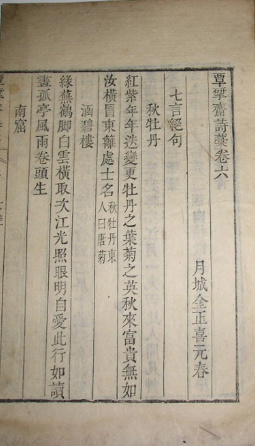 覃揅齋詩藁卷六
月城金正喜元春
七言絕句
秋牡丹
紅紫年年迭變更牡丹之葉菊之英秋來富貴無如
汝橫冒東籬處士名秋牡丹東人曰唐菊
涵碧樓
綠蕪鶴脚白雲橫取次江光照眼明自愛此行如讀
畫孤亭風雨卷頭生
南窟